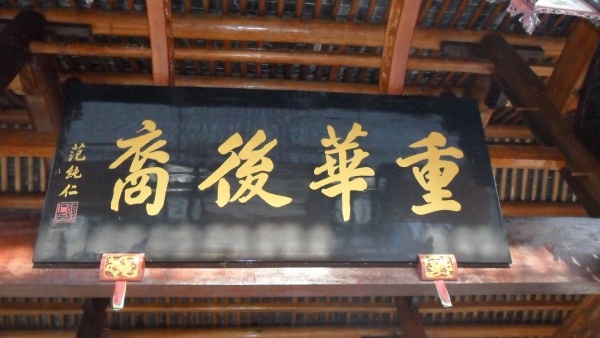 重華後裔
范純仁